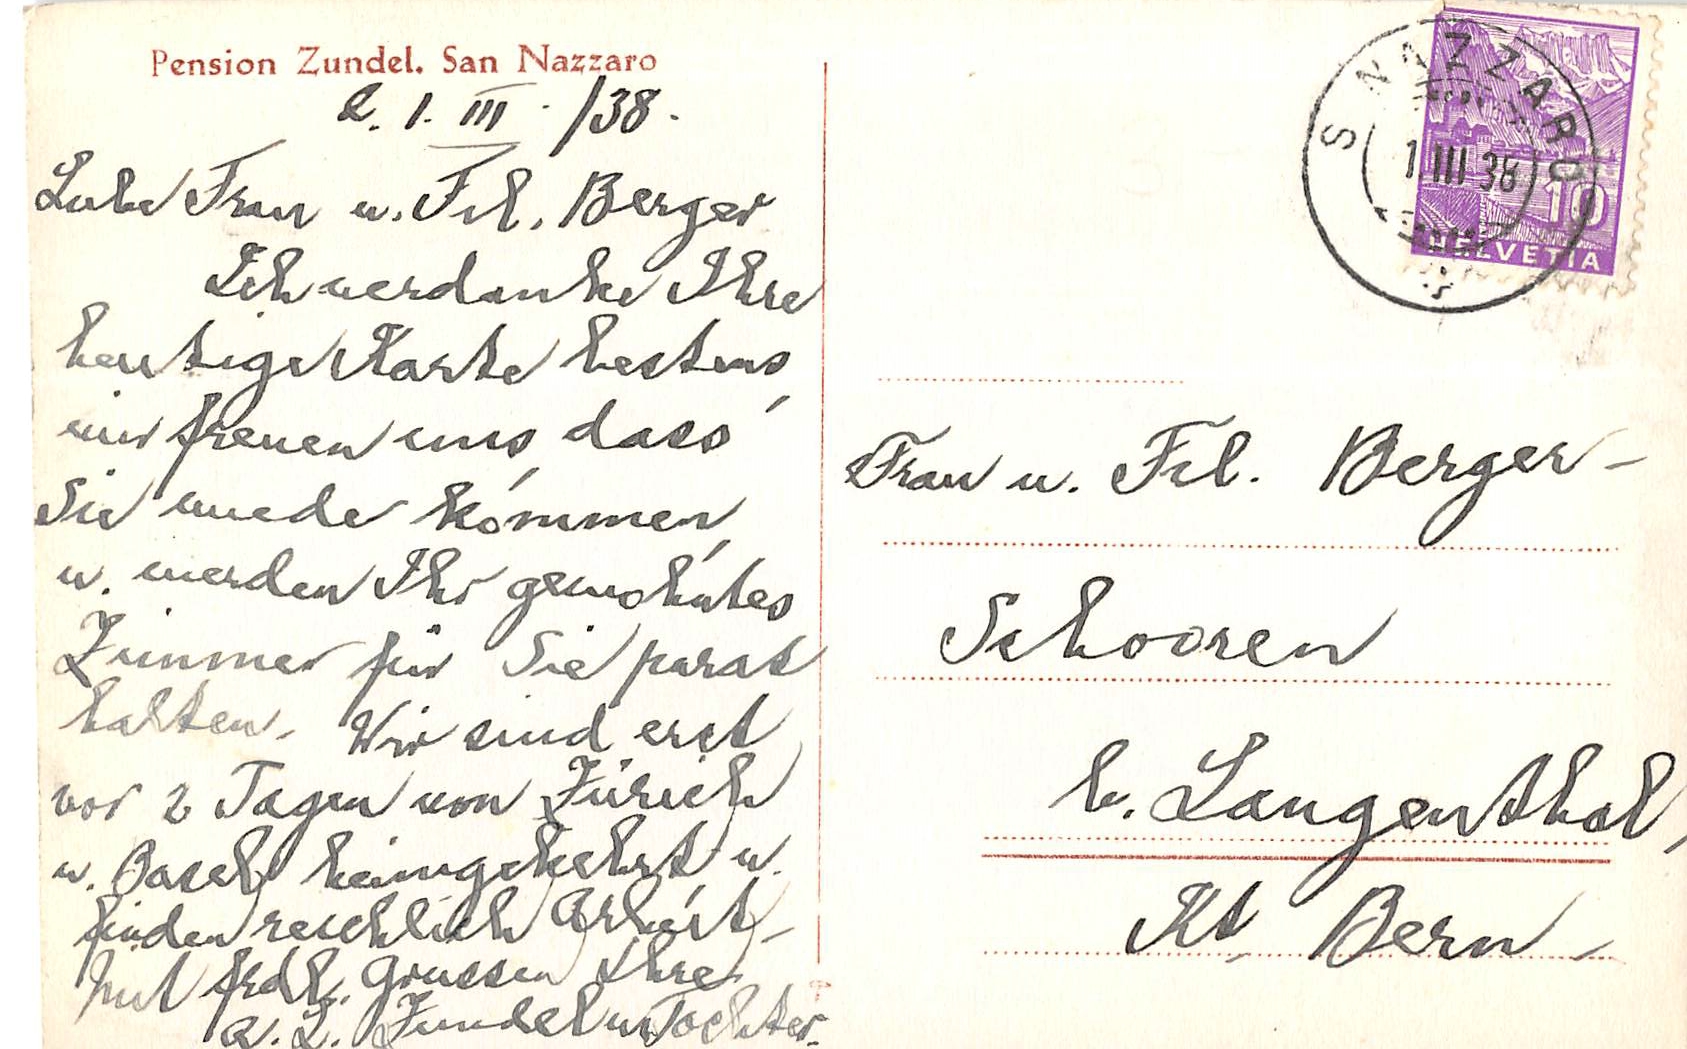 Pension Zundel. San Nazzaro
d. 1. III. /38.
Liebe Frau u. Frl. Berger
Ich verdanke Ihre
heutige Karte bestens,
wir freuen uns, dass
Sie wieder kommen,
u. werden Ihr gewohntes
Zimmer für Sie parat
halten. Wir sind erst
vor 2 Tagen von Zürich
u. Basel heimgekehrt u.
finden reichlich Arbeit -
Mit frdl. Grüssen Ihre
Zundel u. Tochter.
S. NAZZARO
1.III 38
10
HELVETIA
Frau u. Frl. Berger -
Schooren
b. Langenthal,
Kt Bern -